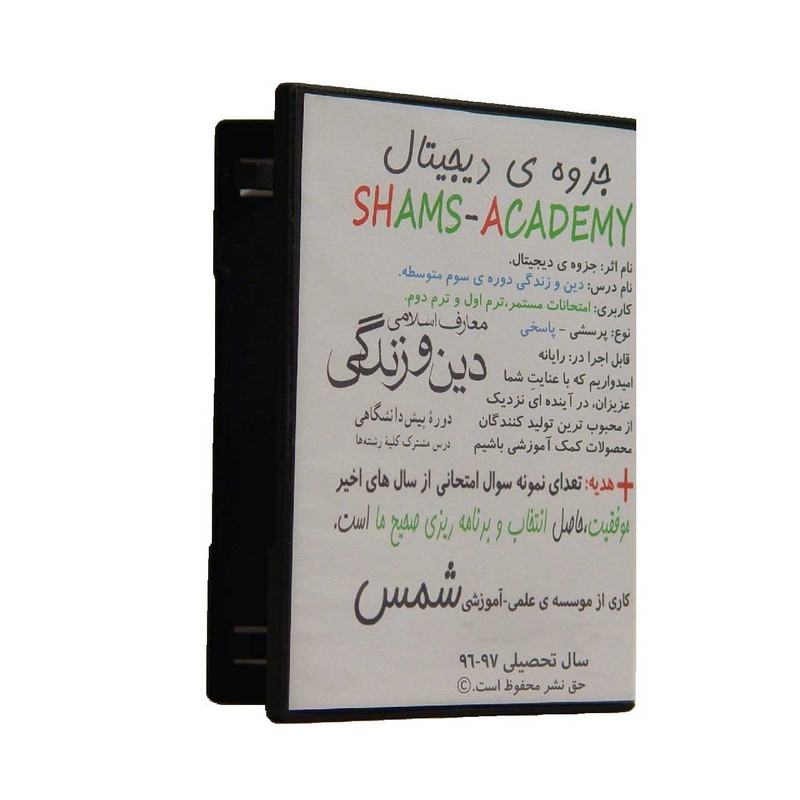 جزوه ی دیجیتال
SHAMS-ACADEMY
نام اثر: جزوه ی دیجیتال.
نام درس: دین و زندگی دوره ی سوم متوسطه.
کاربری: امتحانات مستمر،ترم اول و ترم دوم.
نوع: پرسشی - پاسخی
قابل اجرا در: رایانه
امیدواریم که با عنایتِ شما
عزیزان، در آینده ای نزدیک
از محبوب ترین تولید کنندگان
محصولات کمک آموزشی باشیم
معارف اسلامی
دین و زندگی
دورهٔ پیش‌دانشگاهی
درس مشترک کلیهٔ رشته‌ها
+هدیه: تعدای نمونه سوال امتحانی از سال های اخیر
موفقیت،حاصل انتخاب و برنامه ریزی صحیح ما است.
کاری از موسسه ی علمی-آموزشی شمس
سال تحصیلی ۹۷-۹۶
حق نشر محفوظ است.©